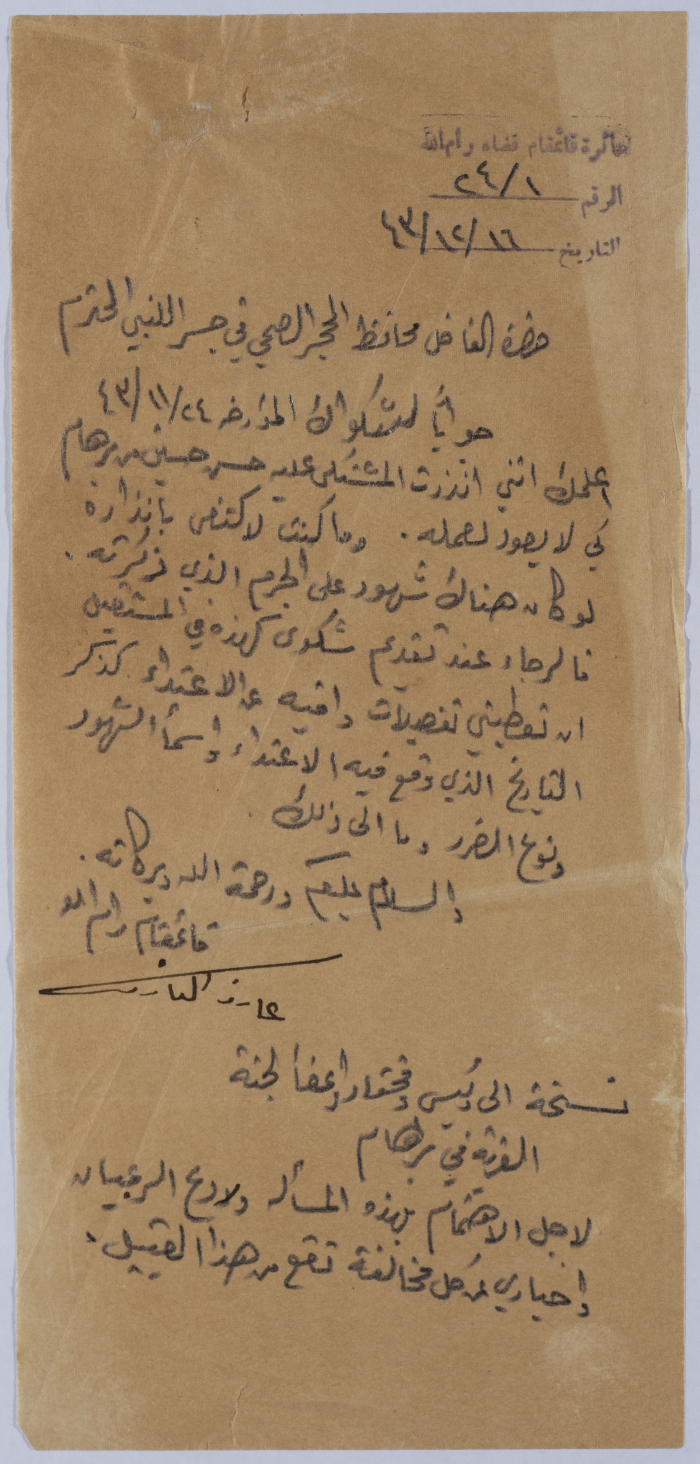 دائرة قائمقام قضاء رام الله
الرقم ٢٤/١
التاريخ ١٦/١٢/٤٣
حضرة الفاضل محافظ الحجر الصحي في جسر اللنبي المحترم
جواباً لشكواك المؤرخه ٢٤/١١/٤٣
اعلمك انني انذرت المشتكى عليه حسن حسين من برهام
كي لا يعود لعمله. وما كنت لاكتفي بانذاره
لو كان هناك شهود على الجرم الذي ذكرته.
فالرجاء عند تقديم شكوى كهذه في المستقبل
ان تعطيني تفصيلات وافيه عن الاعتداء كذكر
التاريخ الذي وقع فيه الاعتداء واسماء الشهود
ونوع الضرر وما الى ذلك.
والسلام عليكم ورحمة الله وبركاته.
قائمقام رام الله
عارف العارف
نسخة الى رئيس ومختار واعضا لجنة
القرية في برهام
لاجل الاهتمام بهذه المسأله ولردع الرعيان
واخباري عن كل مخالفة تقع من هذا القبيل.